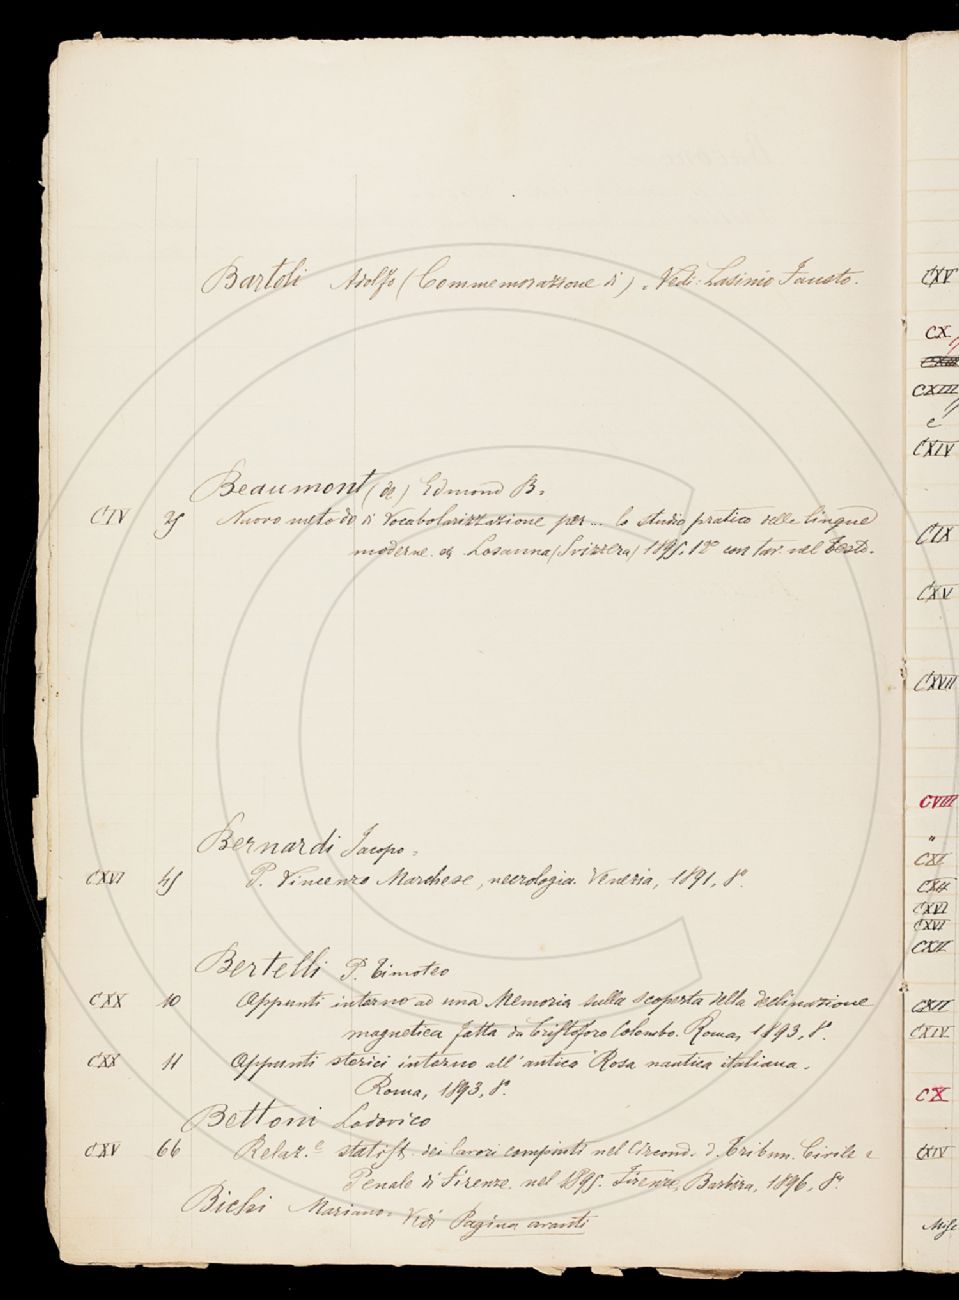 Bartoli Adolfo (Commemorazione di). Vedi: Lasinio Fausto.
Beaumont (de) Edmond B.
CIV 25 Nuovo metodo di Vocabolarizzazione per... lo studio pratico delle lingue
moderne. Losanna (Svizzera) 1895. 12° con tav. nel testo.
Bernardi Jacopo.
CXVI 45 P. Vincenzo Marchese, necrologia. Venezia, 1891, 8°.
Bertelli P. Timoteo
CXX 10 Appunti intorno ad una Memoria sulla scoperta della declinazione
magnetica fatta da Cristoforo Colombo. Roma, 1893, 8°.
CXX 11 Appunti storici intorno all'antica Rosa nautica italiana.
Roma, 1893, 8°.
Bettoni Lodovico
CXV 66 Relaz.e statist. dei lavori compiuti nel Circond. d. Tribun. Civile e
Penale di Firenze. nel 1895. Firenze, Barbèra, 1896, 8°.
Bichi Mariano. Vedi Pagina avanti
CXV
CX
CXIII
e
CXIV
CIX
CXV
CXVII
CVIII
"
CXI
CXII
CXVI
CXVI
CXII
CXII
CXIV
CX
CXIV
Misc